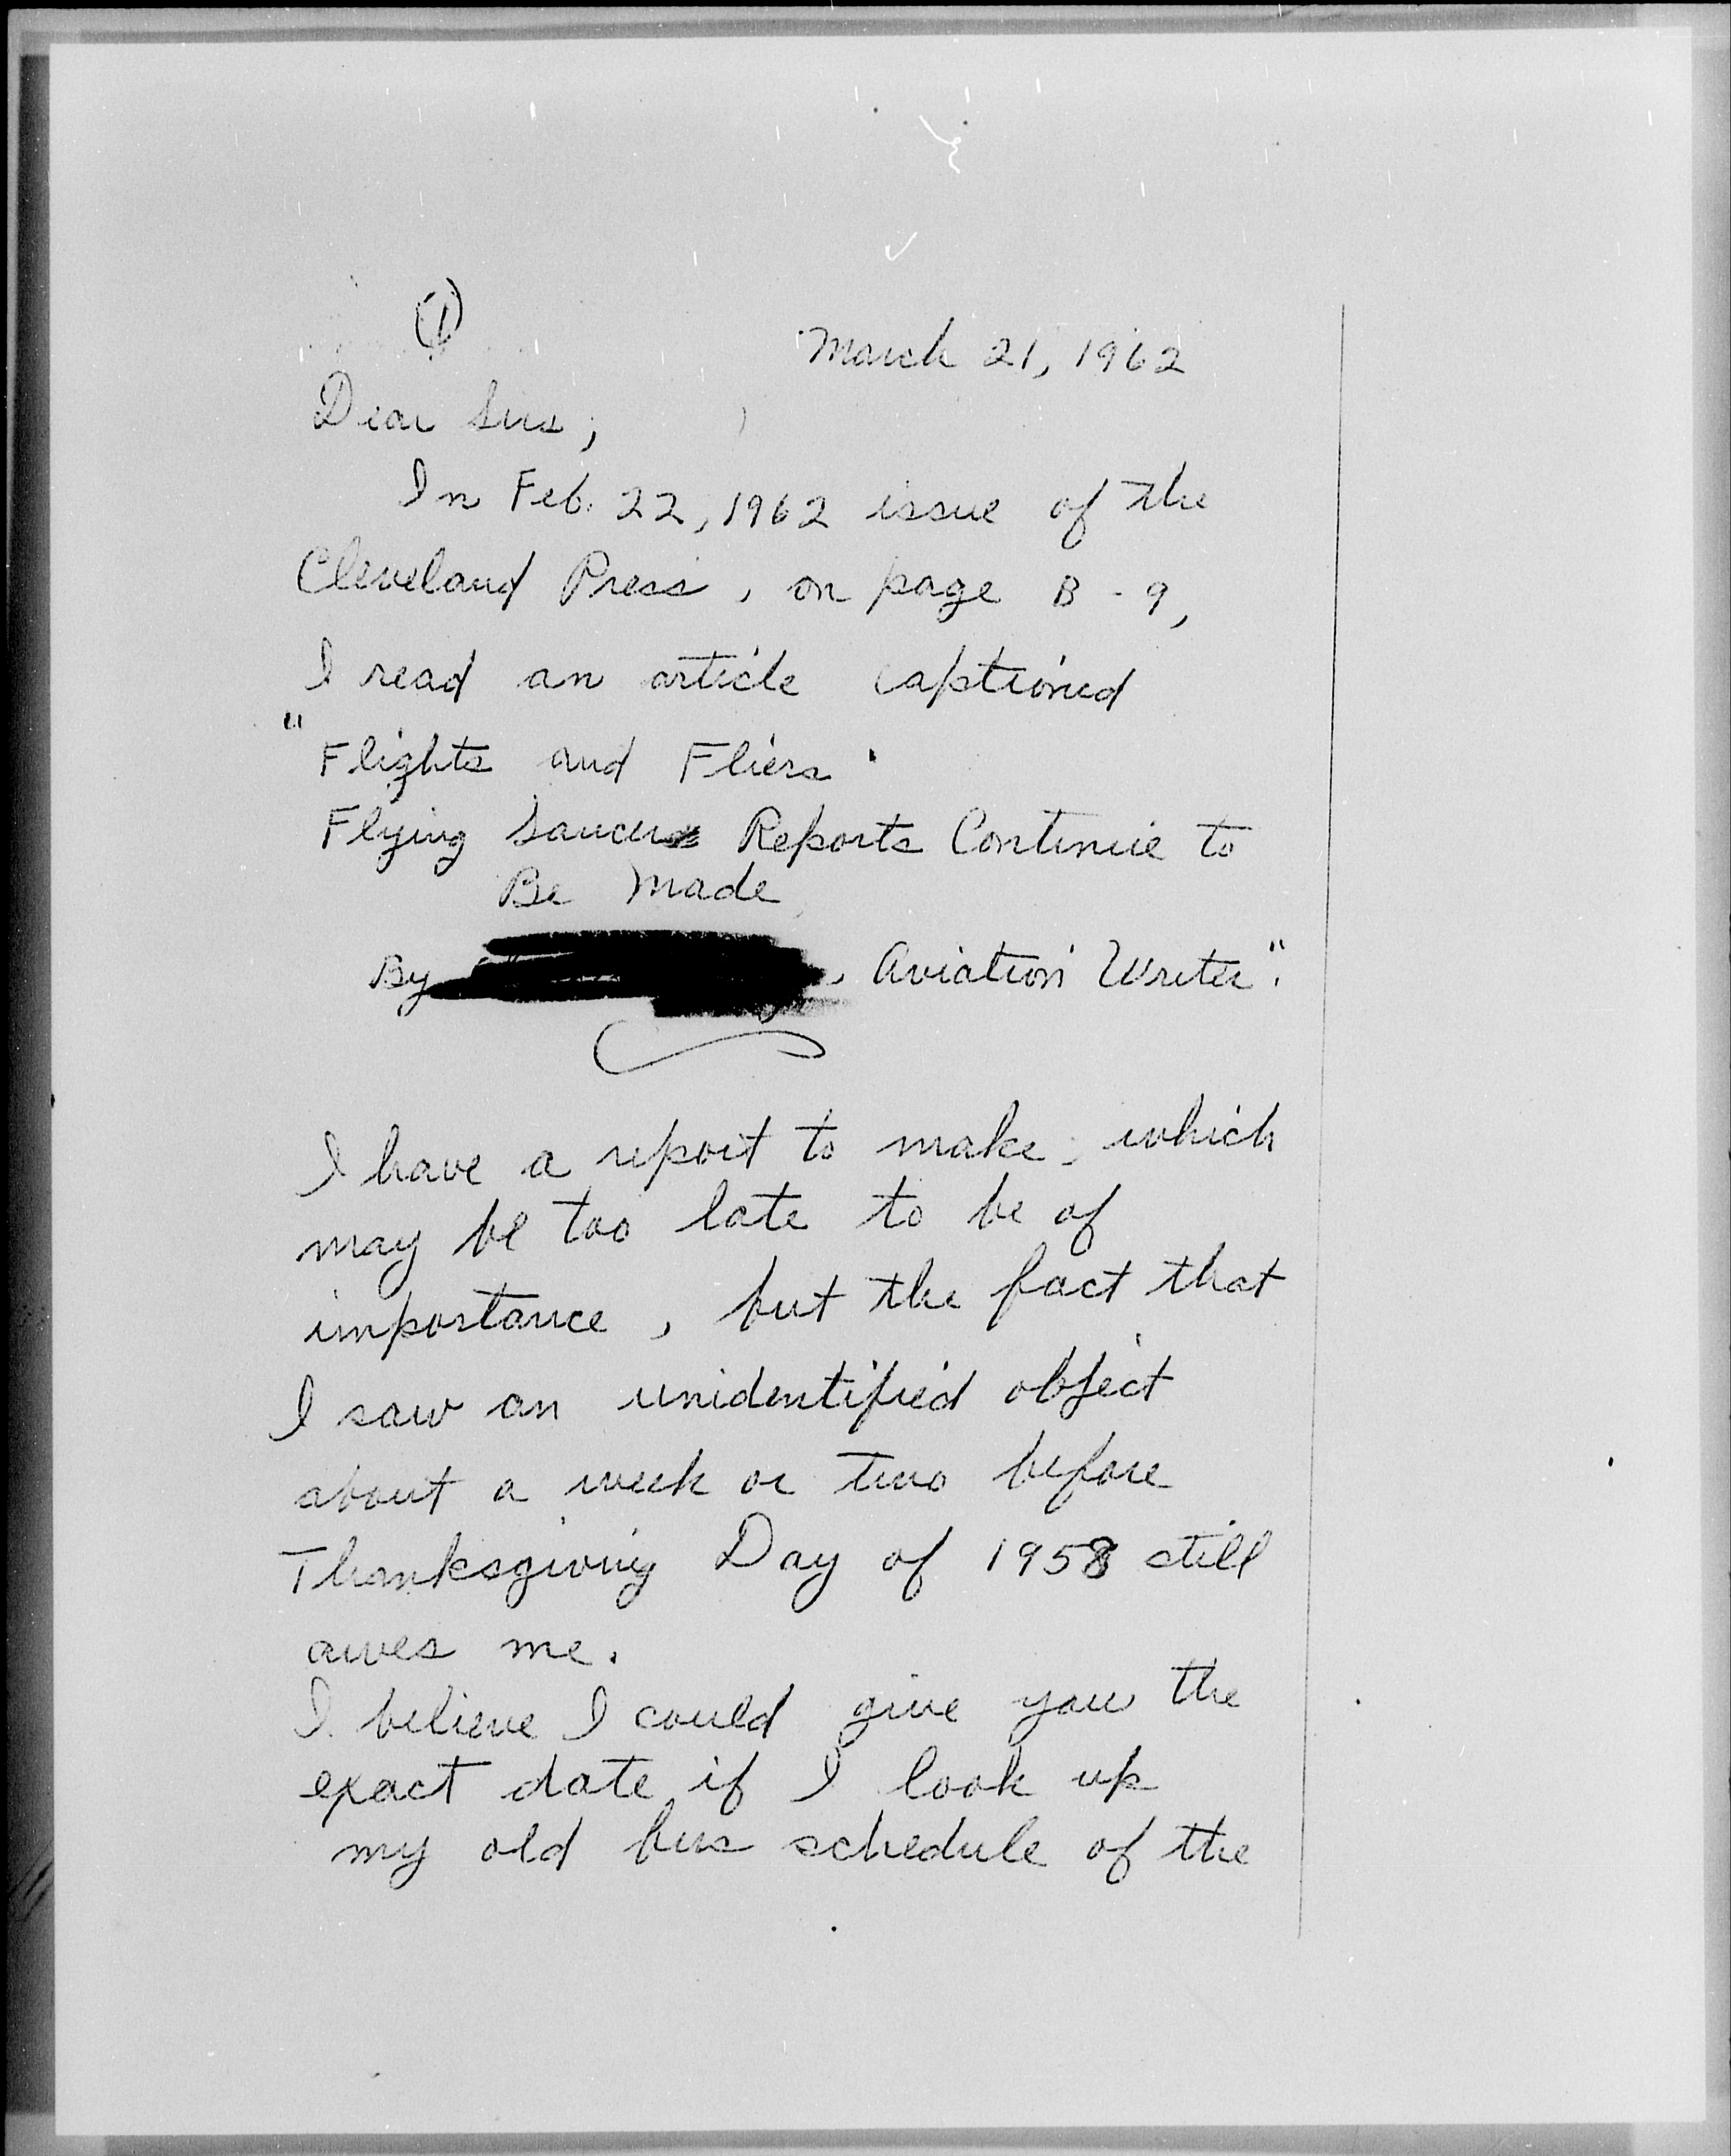 (1)
March 21, 1962
Dear Sirs;
In Feb. 22, 1962 issue of the
Cleveland Press, on page B-9,
I read an article captioned
"Flights and Fliers
Flying Saucer Reports Continue to
Be Made
By , Aviation Writer".
I have a report to make, which
may be too late to be of
importance, but the fact that
I saw an unidentified object
about a week or two before
Thanksgiving Day of 1958 still
awes me.
I believe I could give you the
exact date if I look up
my old bus schedule of the